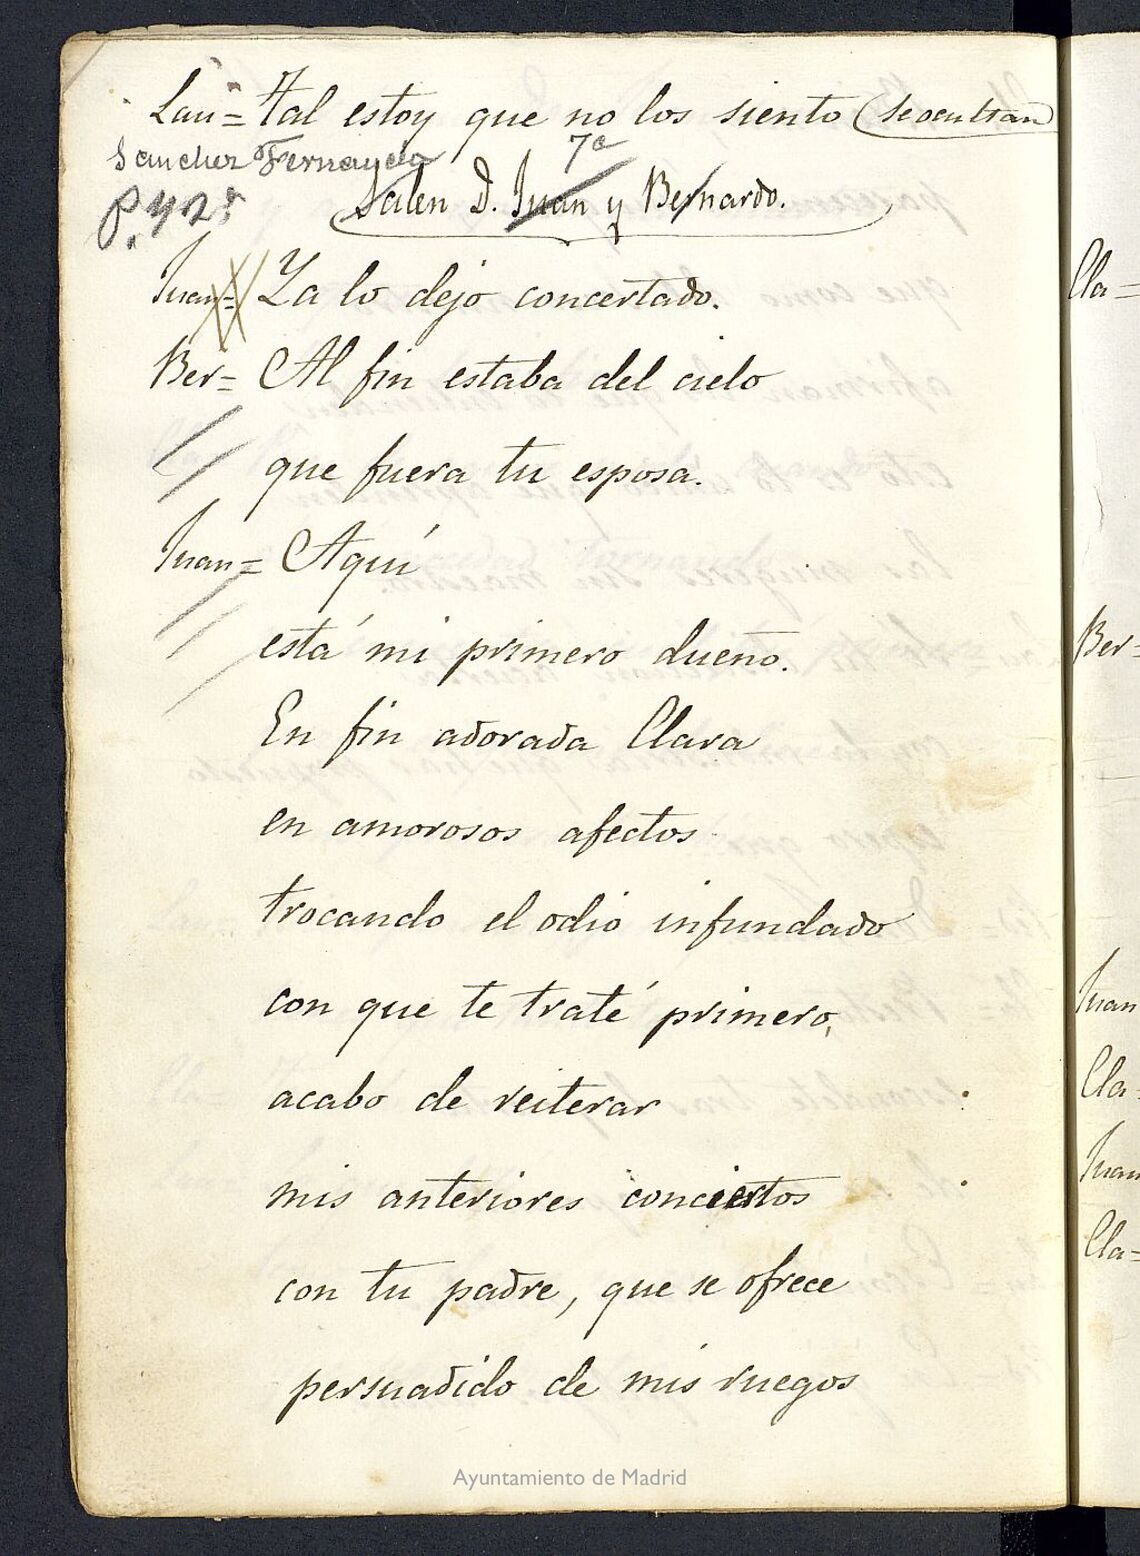 Lau= Tal estoy que no los siento (se ocultan)
Sanchez Fernando 7ª
Salen D. Juan y Bernardo.
Juan= Ya lo dejo concertado.
Ber= Al fin estaba del cielo
que fuera tu esposa.
Juan= Aquí
está mi primero dueño.
En fin adorada Clara
en amorosos afectos
trocando el odio infundado
con que te traté primero,
acabo de reiterar
mis anteriores conciertos
con tu padre, que se ofrece
persuadido de mis ruegos
Cla=
Ber=
Juan
Cla=
Juan
Cla=
Ayuntamiento de Madrid